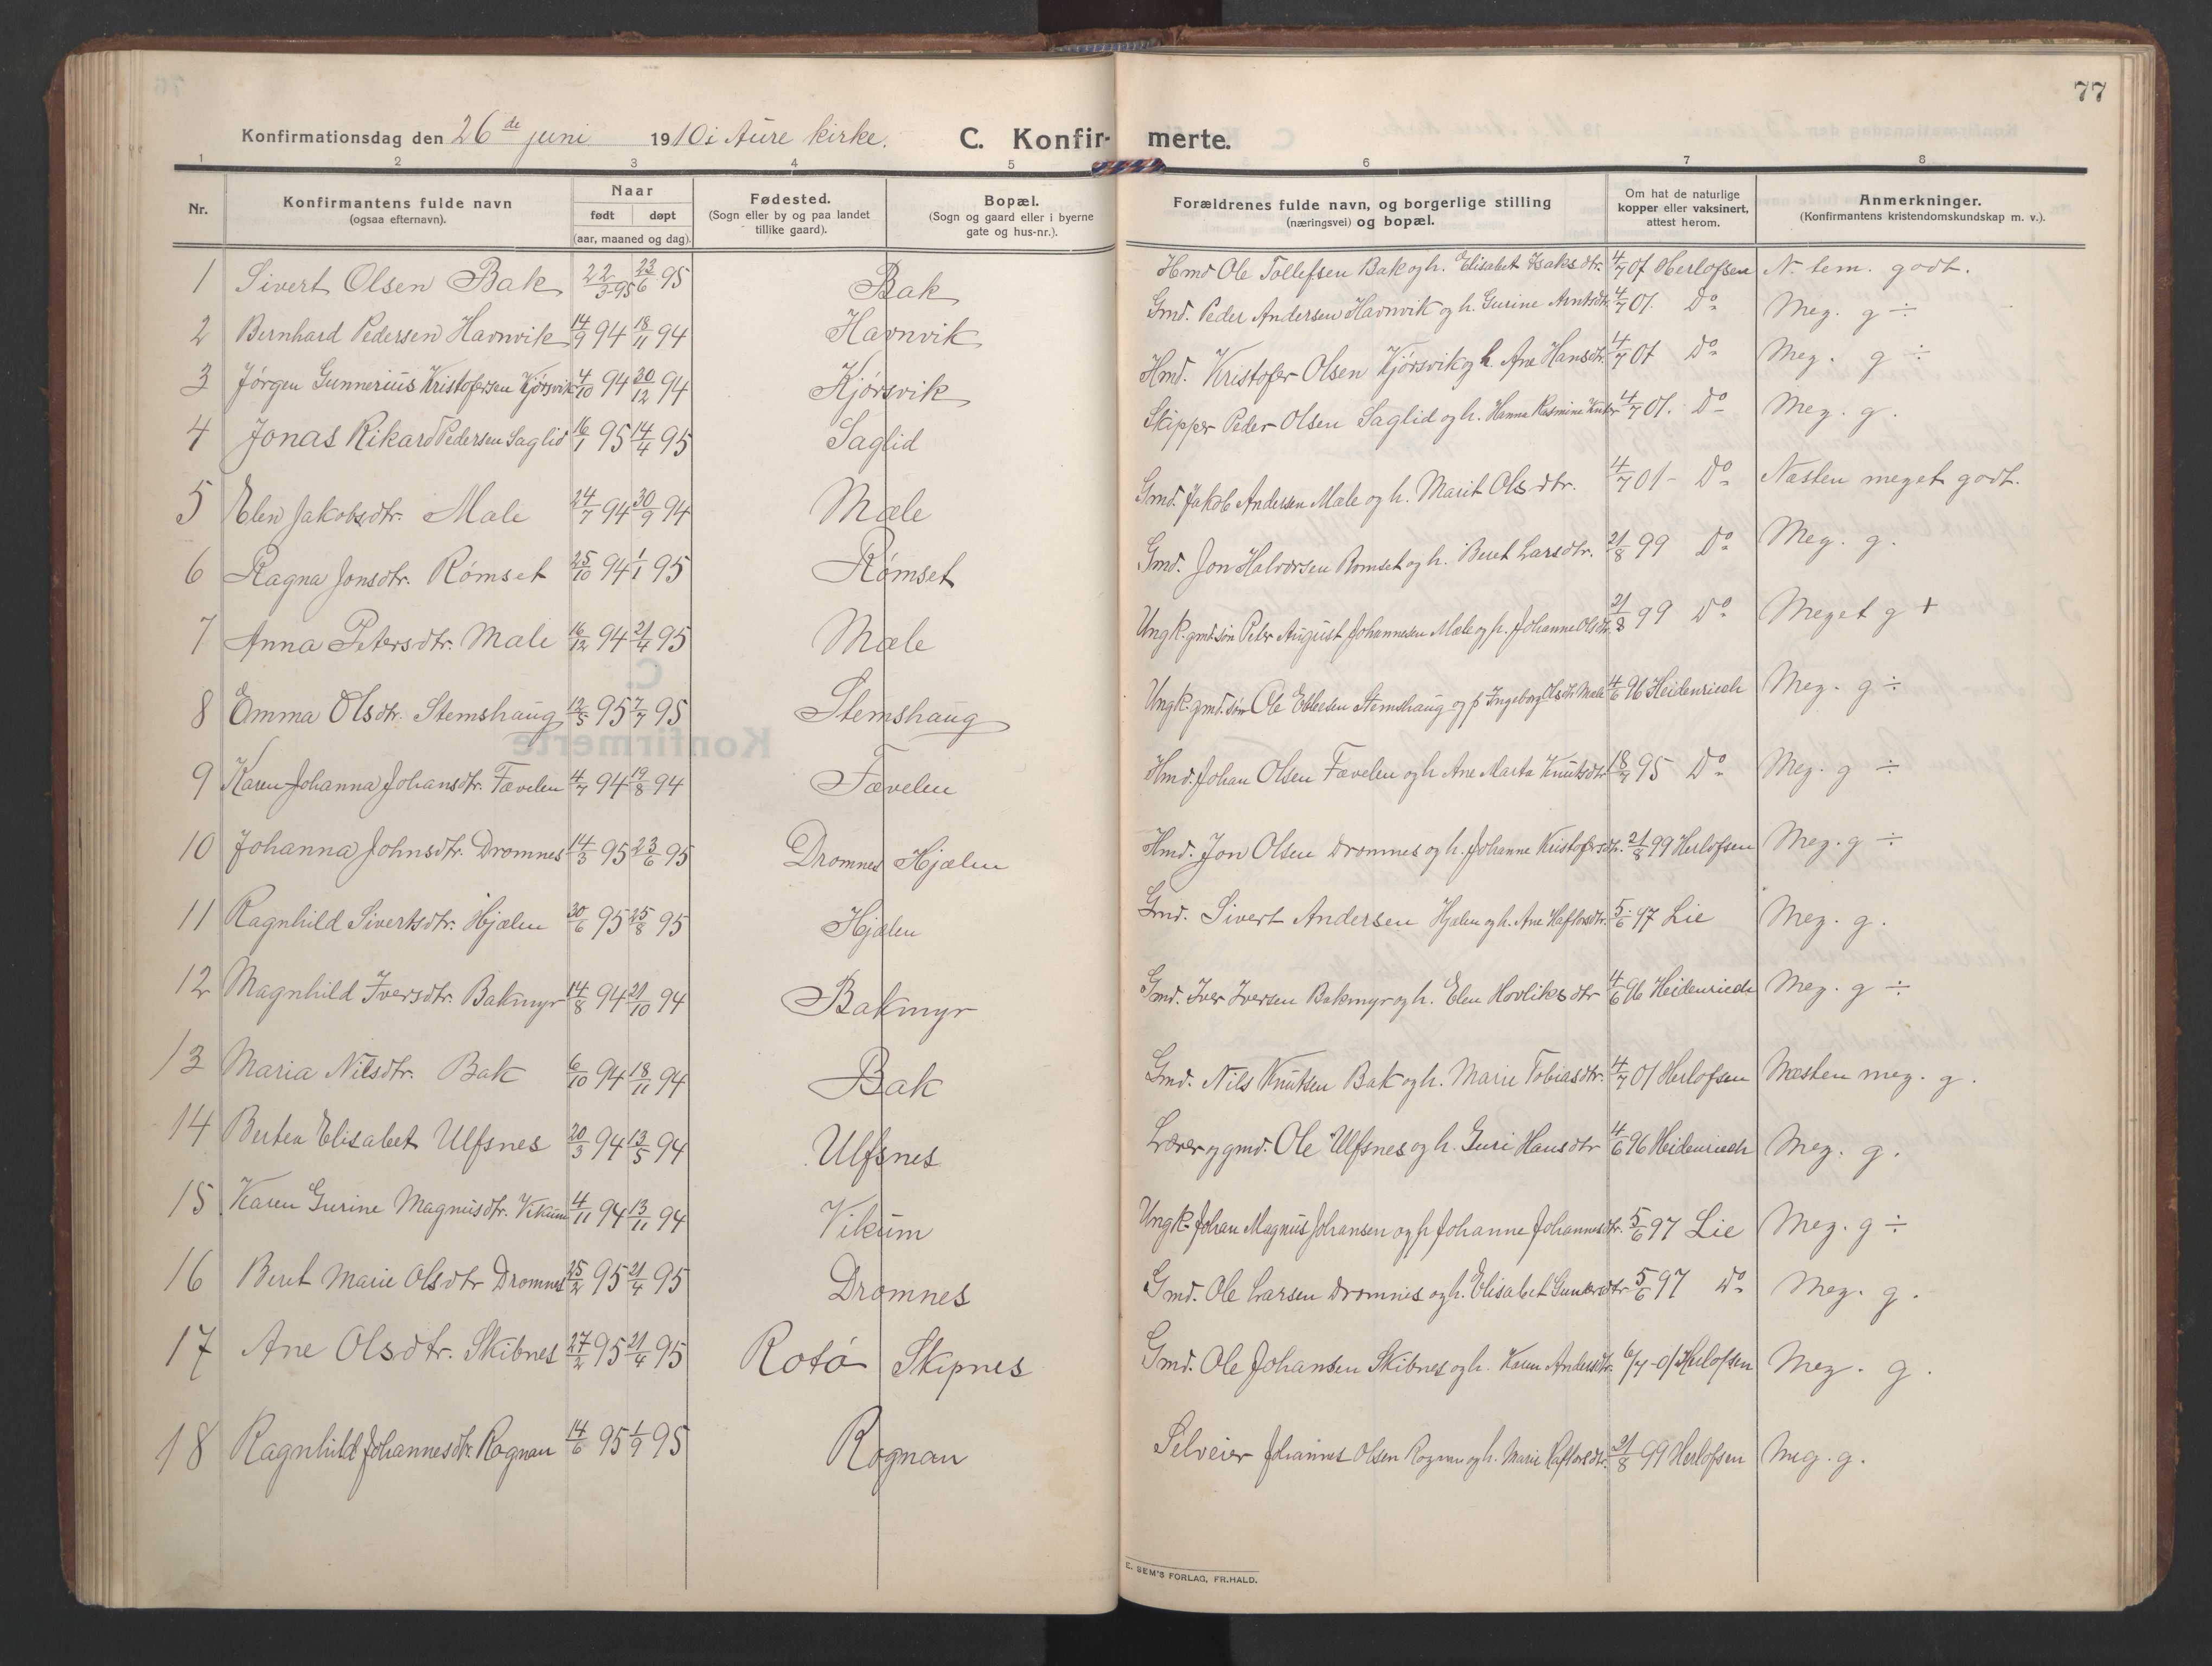 77
Konfirmationsdag den 26de juni 1910 i Aure kirke. C. Konfir- merte.
1 2 3 4 5 6 7 8
Nr. Konfirmantens fulde navn (ogsaa efternavn). Naar født døpt (aar, maaned og dag). Fødested. (Sogn eller by og paa landet tillike gaard). Bopæl. (Sogn og gaard eller i byerne gate og hus-nr.). Forældrenes fulde navn, og borgerlige stilling (næringsvei) og bopæl. Om hat de naturlige kopper eller vaksinert, attest herom. Anmerkninger. (Konfirmantens kristendomskundskap m. v.).
1 Sivert Olsen Bak 22/3-95 23/6 95 Bak Hmd Ole Tollefsen Bak og h. Elisabet Isaksdtr. 4/7 01 Herlofsen N. tem. godt.
2 Bernhard Pedersen Havnvik 14/9 94 18/11 94 Havnvik Gmd. Peder Andersen Havnvik og h. Gurine Arntsdtr 4/7 01. Do Meg. g ÷
3 Jørgen Gunnerius Kristofersen Kjørsvik 4/10 94 30/12 94 Kjørsvik Hmd. Kristofer Olsen Kjørsvik og h. Ane Hansdtr. 4/7 01 Do Meg. g ÷
4 Jonas Rikard Pedersen Saglid 16/1 95 14/4 95 Saglid Skipper Peder Olsen Saglid og h. Hanna Rasmine 4/7 01. Do Meg. g.
5 Elen Jakobsdtr. Mæle 24/7 94 30/9 94 Mæle Gmd. Jakob Andersen Mæle og h. Marit Olsdtr. 4/7 01 - Do Næsten meget godt.
6 Ragna Jonsdtr. Rømset 25/10 94 1/1 95 Rømset Gmd. Jon Halvorsen Rømset og h. Beret Larsdtr. 21/8 99 Do Meg. g.
7 Anna Petersdtr. Mæle 16/12 94 21/4 95 Mæle Ungk. gmd.søn Peter August Johannesen Mæle og p. Johanne Olsdtr. 21/8 99 Do Meget g +
8 Emma Olsdtr. Stemshaug 12/5 95 7/7 95 Stemshaug Ungk. gmd. søn Ole Ebbesen Stemshaug og p Ingeborg Olsdtr Mæle 4/6 96 Heidenriech Meg. g ÷
9 Karen Johanna Johansdtr. Fævelen 4/7 94 19/8 94 Fævelen Hmd. Johan Olsen Fævelen og h Ane Marta Knutsdtr 18/7 95 Do Meg. g ÷
10 Johanna Johnsdtr. Dromnes 14/3 95 23/6 95 Dromnes Hjælen Hmd. Jon Olsen Dromnes og h. Johanne Kristofersdtr. 21/8 99 Herlofsen Meg. g ÷
11 Ragnhild Sivertsdtr. Hjælen 30/6 95 25/8 95 Hjælen Gmd. Sivert Andersen Hjælen og h. Ane Haftorsdtr. 5/6 97 Lie Meg. g.
12 Magnhild Iversdtr. Bakmyr 14/8 94 21/10 94 Bakmyr Gmd. Iver Iversen Bakmyr og h. Elen Hovliksdtr 4/6 96 Heidenriech Meg. g ÷
13 Maria Nilsdtr. Bak 6/10 94 18/11 94 Bak Gmd. Nils Knutsen Bak og h. Marie Tobiasdtr. 4/7 01 Herlofsen Næsten meg. g.
14 Bertea Elisabet Ulfsnes 20/3 94 13/5 94 Ulfsnes Lærer og gmd. Ole Ulfsnes og h. Guri Hansdtr 4/6 96 Heidenriech Meg. g.
15 Karen Gurine Magnusdtr. Vikum 4/11 94 13/11 94 Vikum Ungk. Johan Magnus Johansen og p Johanne Johannesdtr. 5/6 97 Lie Meg. g ÷
16 Beret Marie Olsdtr Dromnes 25/2 95 21/4 95 Dromnes Gmd. Ole Larsen Dromnes og h. Elisabet Gunnersdtr 5/6 97 Do Meg. g.
17 Ane Olsdtr. Skibnes 27/2 95 21/4 95 Rotø Skipnes Gmd. Ole Johansen Skibnes og h. Karen Andersdtr. 6/7-01 Herlofsen Meg. g.
18 Ragnhild Johannesdtr. Rognan 14/6 95 1/9 95 Rognan Selveier Johannes Olsen Rognan og h. Marie Haftorsdtr. 21/8 99 Herlofsen Meg. g.
E. SEM'S FORLAG, FR.HALD.